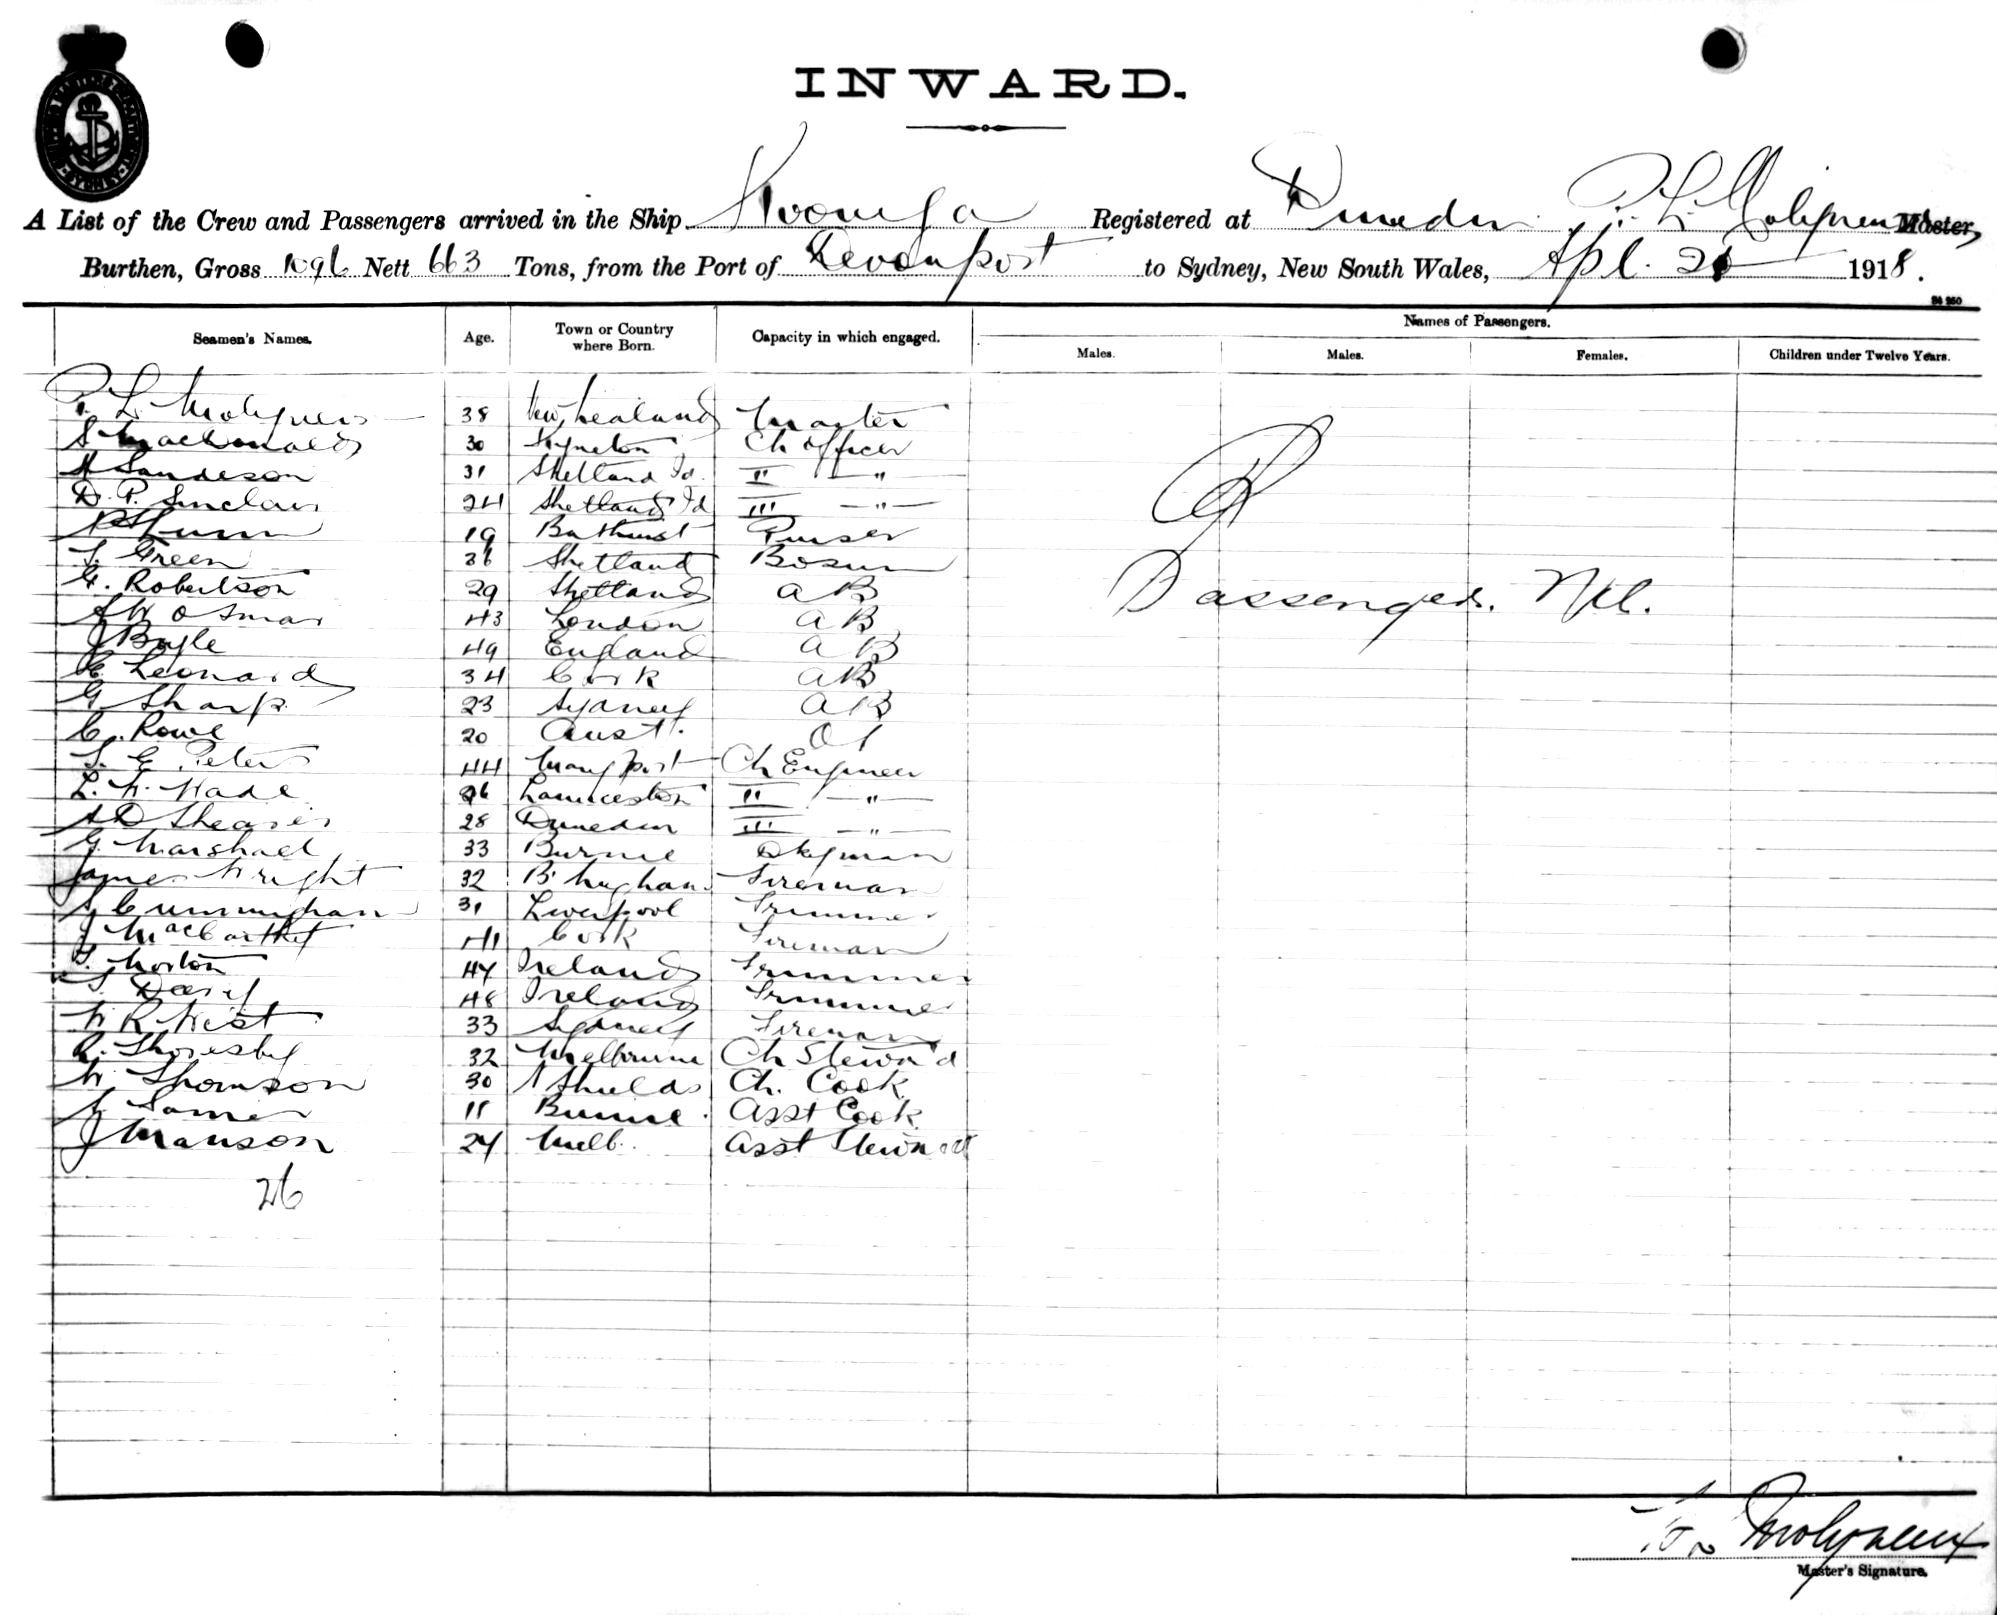 INWARD.
A List of the Crew and Passengers arrived in the Ship Kooringa Registered at Dunedin P. L. Molyneux Master,
Burthen, Gross 1096 Nett 663 Tons, from the Port of Devonport to Sydney, New South Wales, Apl. 21 1918.
Names of Passengers.
Seamen's Names. Age. Town or Country where Born. Capacity in which engaged. Males. Males. Females. Children under Twelve Years.
P. L. Molyneux 38 New Zealand Master
S Macdonald 30 Kyneton Ch Officer
A Sandeson 31 Shetland Id. II — " —
D. P. Sinclair 24 Shetland Id III — " —
19 Bathurst Purser
T. Green 36 Shetland Bosun
G. Robertson 29 Shetland AB
43 London AB
J Boyle 49 England AB
C Leonard 34 Cork AB
G Sharp 23 Sydney AB
C. Rowe 20 Aust. OS
Passengers. Nil.
T. E Peters 44 Maryport Ch Engineer
L. W. Wade 26 Launceston II — " —
A D Shearer 28 Dunedin III — " —
G. Marshall 33 Burnie Dkyman
James Wright 32 B'mgham Fireman
A Cunningham 31 Liverpool Trimmer
J MacCarthy 41 Cork Fireman
T. Morton 47 Ireland Trimmer
T. Davey 48 Ireland Trimmer
W R West 33 Sydney Fireman
R. Thoresby 32 Melbourne Ch Steward
W. Thomson 30 N Shields Ch. Cook
Burnie. Asst Cook
J Manson 24 Melb. Asst Steward
26
Molyneux
Master's Signature.